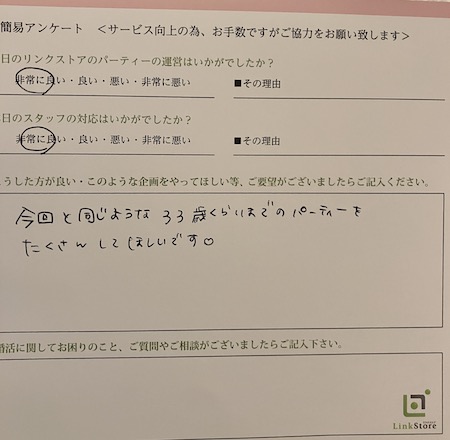 簡易アンケート ＜サービス向上の為、お手数ですがご協力をお願い致します＞
日のリンクストアのパーティーの運営はいかがでしたか？
非常に良い・良い・悪い・非常に悪い ■その理由
日のスタッフの対応はいかがでしたか？
非常に良い・良い・悪い・非常に悪い ■その理由
うした方が良い・このような企画をやってほしい等、ご要望がございましたらご記入ください。
今回と同じような33歳くらいまでのパーティーを
たくさんしてほしいです♡
婚活に関してお困りのこと、ご質問やご相談がございましたらご記入下さい。
LinkStore